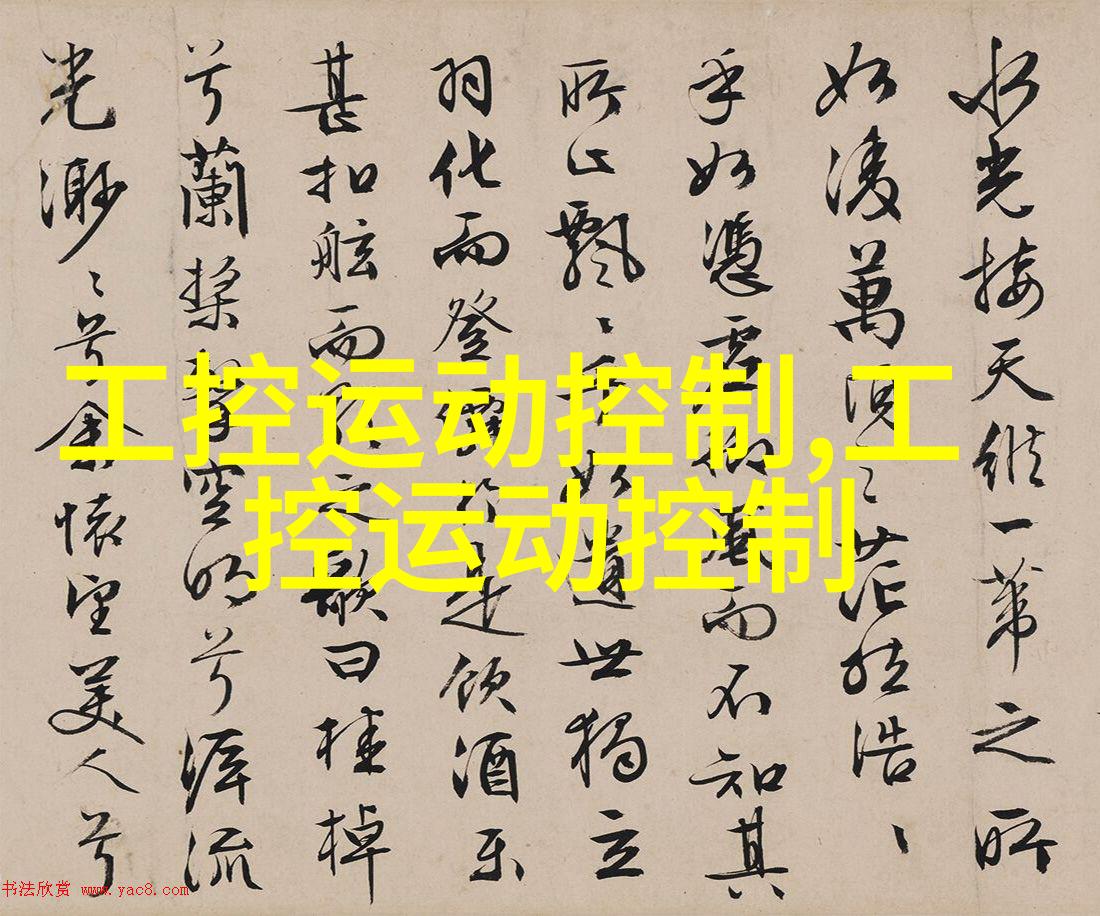 水光接天縱一葦之所
如凌萬頃之茫然浩〻
乎如憑虛御風而不知其
所止飄〻乎如遺世獨立
羽化而登僊於是飲酒樂
甚扣舷而歌之歌曰桂棹
兮蘭槳擊空明兮泝流
光渺〻兮余懷望美人兮
工控运动控制,工
控运动控制
书法欣赏 www.yac8.com